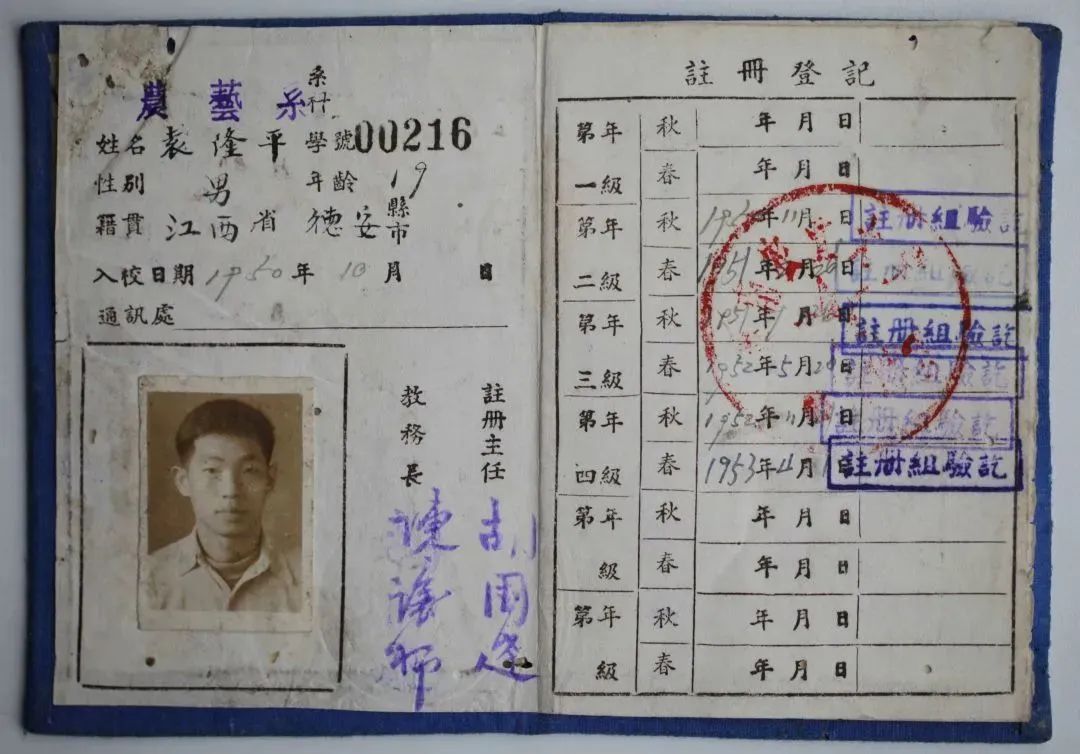 農藝系
系科
姓名 袁隆平 學號 00216
性別 男 年齡 19
籍貫 江西省 德安 縣市
入校日期 1950年10月 日
通訊處
註冊主任
教務長
註冊登記
第一年級 秋 年月日
春 年月日
第二年級 秋 年11月 日 註册組驗訖
春 1951年 月 日 註册組驗訖
第三年級 秋 1951年 月 日 註册組驗訖
春 1952年5月 日 註册組驗訖
第四年級 秋 1952年11月 日 註册組驗訖
春 1953年4月 註册組驗訖
第年級 秋 年月日
春 年月日
第年級 秋 年月日
春 年月日